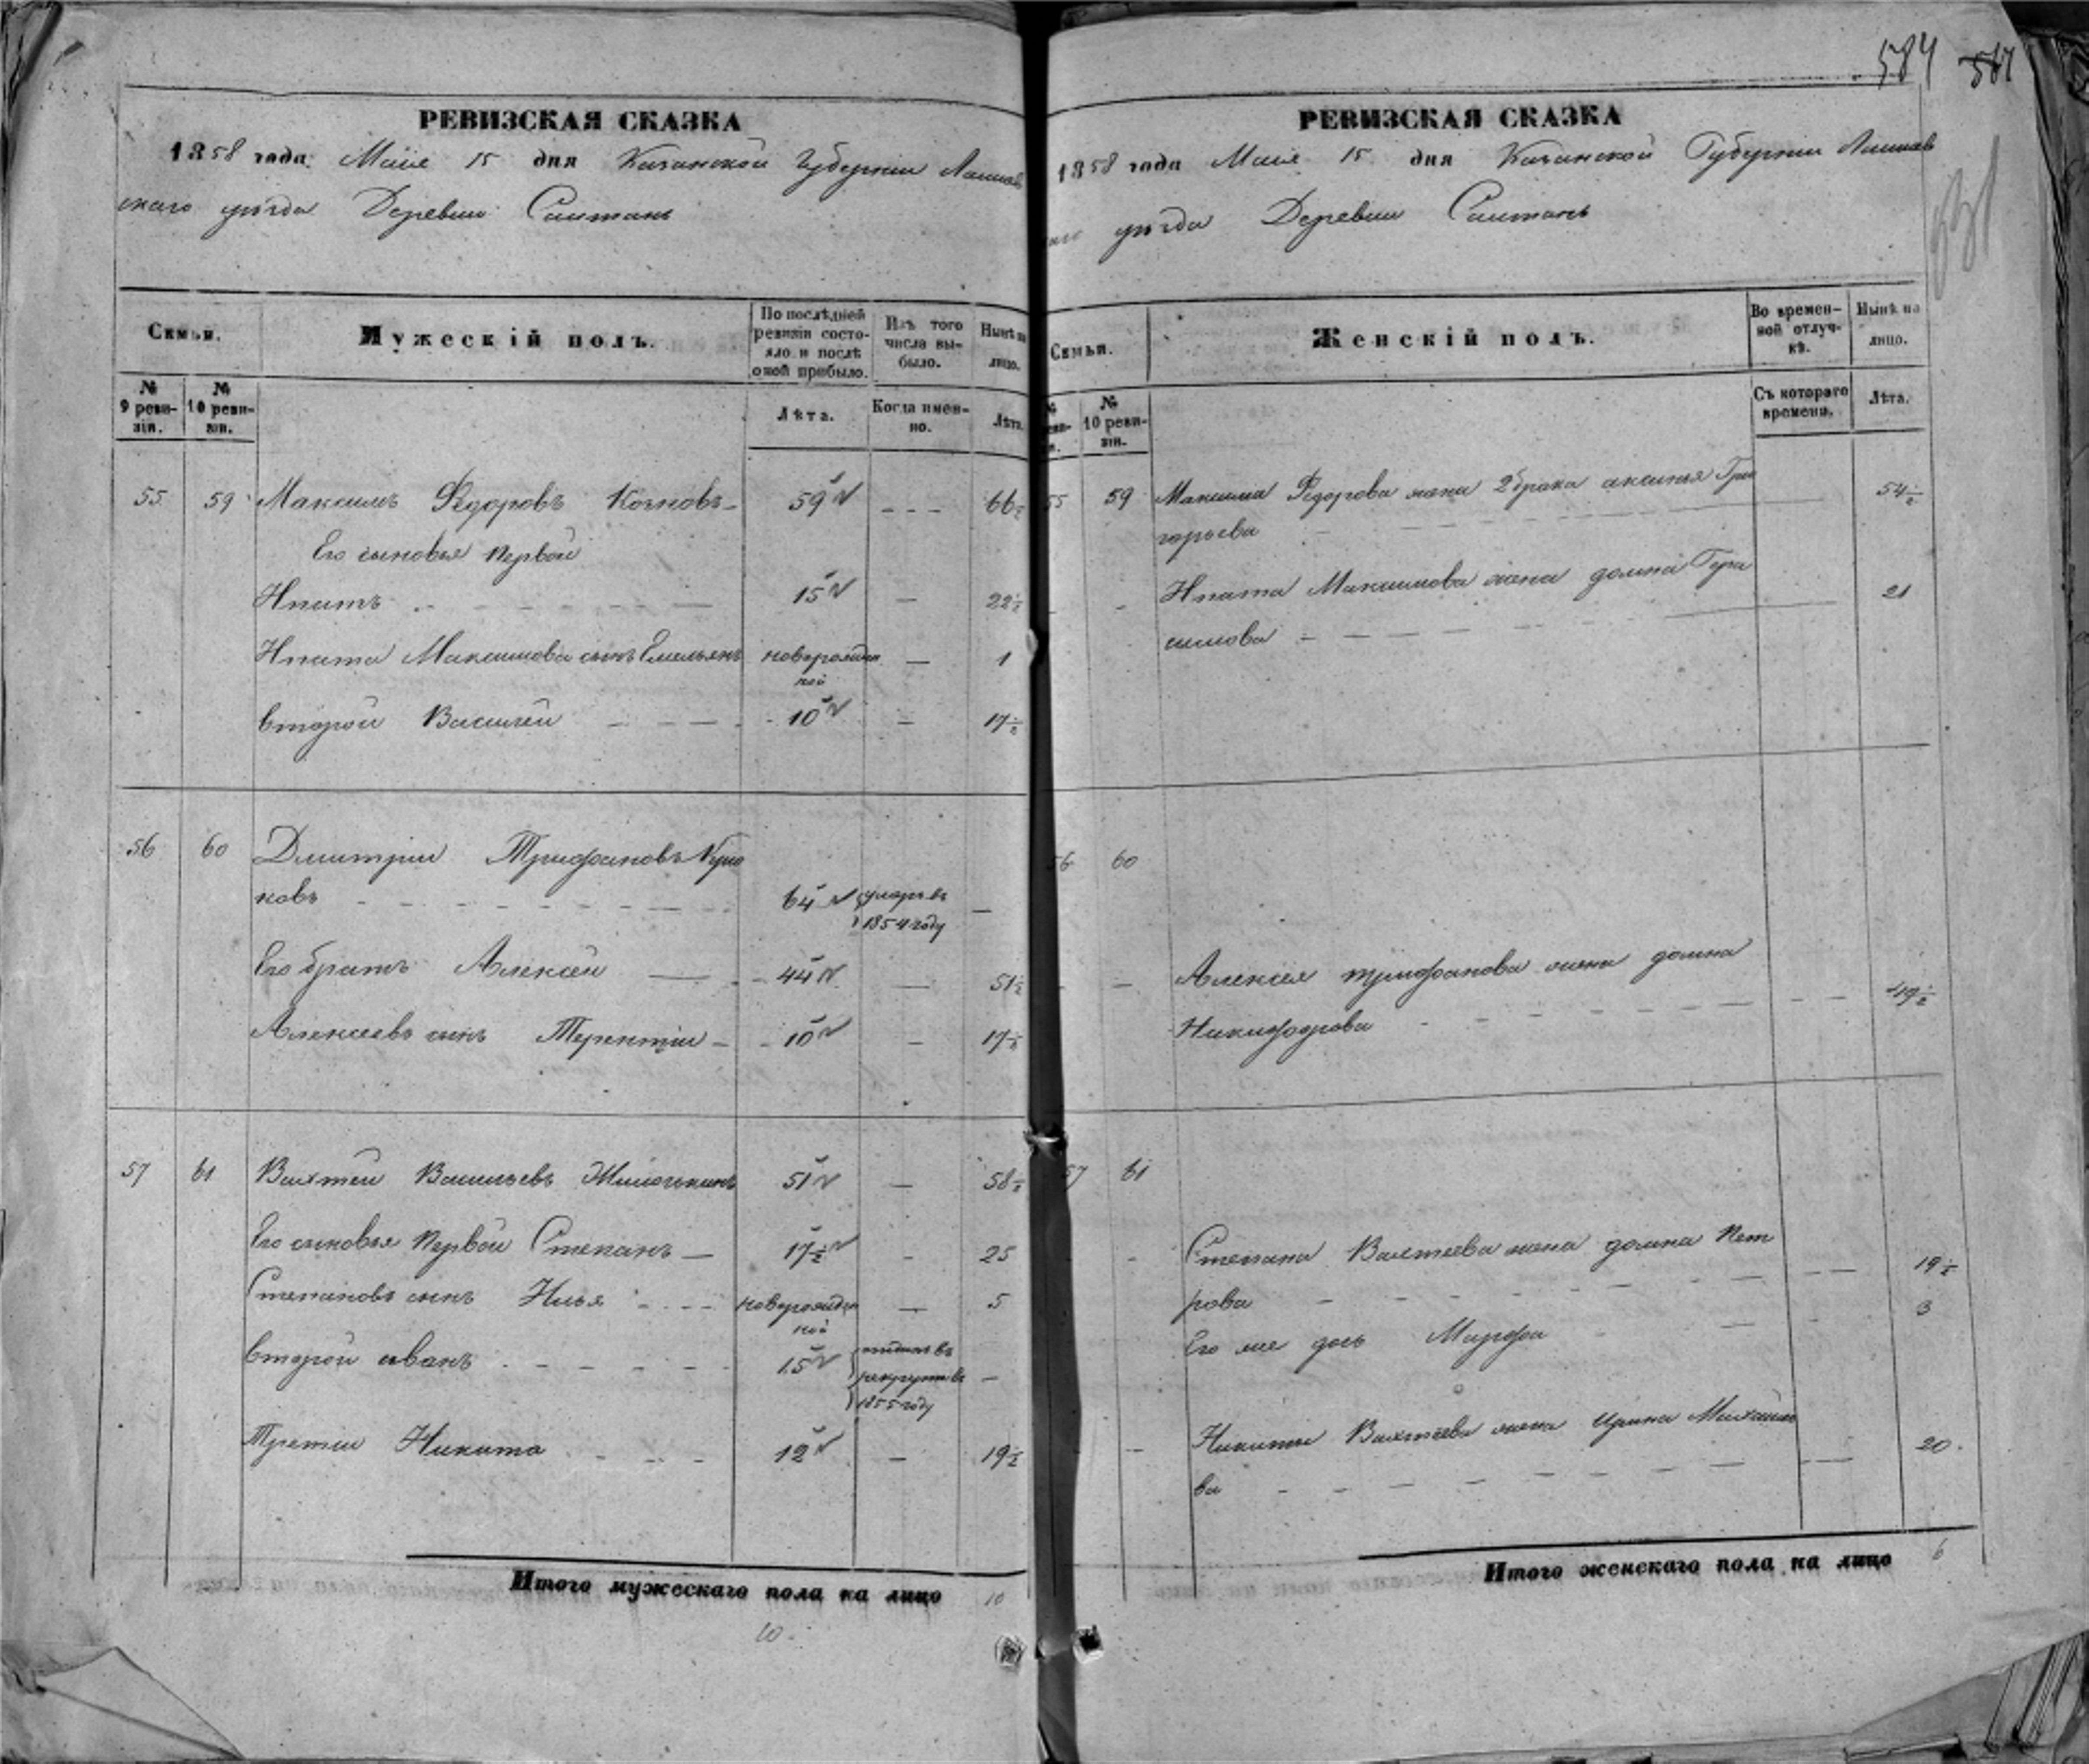 584 567
РЕВИЗСКАЯ СКАЗКА
1858 года Маія 15 дня Казанской Губерніи Лаишев
скаго уѣзда Деревни Саитовъ
Семьи.
Мужескій полъ.
По послѣдней ревизіи состояло и послѣ оной прибыло.
Изъ того числа выбыло.
Нынѣ на лицо.
№ 9 ревизіи.
№ 10 ревизіи.
Лѣта.
Когда именно.
Лѣта.
55 59 Максимъ Ѳедоровъ 59 - - - 66½
Его сыновья первой
Ипатъ 15 — 22½
Ипата Максимова сынъ Емельянъ новорожден — 1
ной
второй Василей 10 — 17½
56 60 Дмитріи Трифановъ
новъ 64 умеръ въ —
1854 году
Его братъ Алексѣи 44 — 51½
Алексеевъ сынъ Терентіи 10 — 17½
57 61 Вахтеи Васильевъ 51 — 58½
Его сыновья первой Степанъ 17½ - 25
Степановъ сынъ Илья новорожден — 5
ной
второй иванъ 15 отданъ въ —
рекруты въ
1855 году
Третіи Никита 12 — 19½
Итого мужескаго пола на лицо 10
10
РЕВИЗСКАЯ СКАЗКА
1858 года Маія 15 дня Казанской Губерніи Лаишев
уѣзда Деревни Саитовъ
Семьи.
Женскій полъ.
Во временной отлучкѣ.
Нынѣ на лицо.
№ 10 ревизіи.
Съ котораго времени.
Лѣта.
55 59 Максима Ѳедорова жена 2 брака аксинья Гри — 54½
горьева
Ипата Максимова жена домна Гера 21
симова
56 60
Алексея трифанова жена домна 49½
Никифорова
57 61
Степана Вахтеева жена домна Пет 19½
рова
Его же дочь Марфа 3
Никиты Вахтеева жена Ирина Михаило 20
ва
Итого женскаго пола на лицо 6